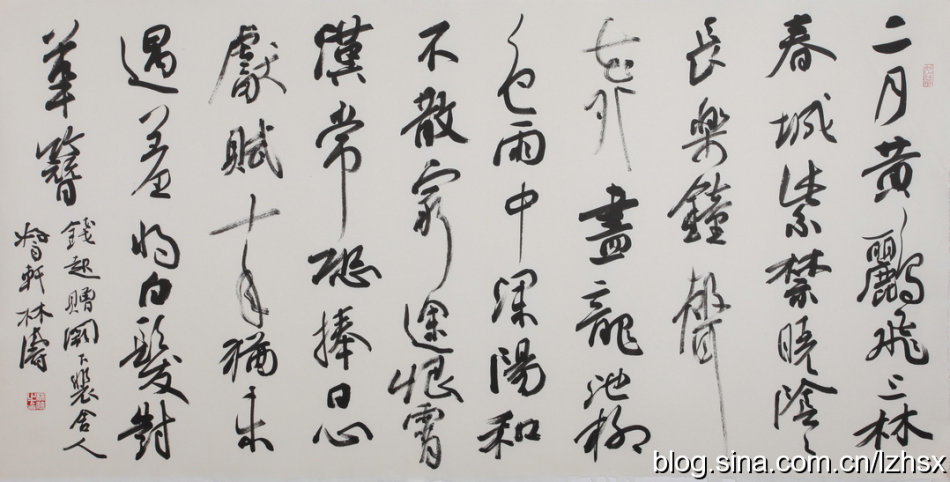 二月黄鸝飛上林
春城紫禁曉陰〻
長楽鐘聲
花外盡龍池柳
色雨中深陽和
不散窮途恨霄
漢常懸捧日心
獻賦十年猶未
遇羞将白髮對
華簪
錢起贈闕下裴舍人
軒林濤
blog.sina.com.cn/lzhsx